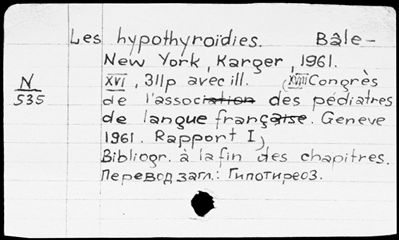 Les hypothyroïdies. Bâle-
New York, Karger, 1961.
N
535
XVI, 311p avec ill. (XVIII Congrès
de l'association des pédiatres
de langue française. Geneve
1961. Rapport I)
Bibliogr. à la fin des chapitres.
Перевод загл.: Гипотиреоз.